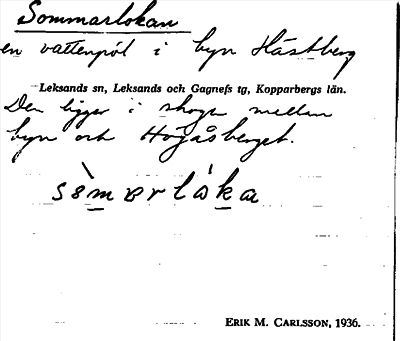 Sommarlokan
en vattenpöl i byn Hästberg
Leksands sn, Leksands och Gagnefs tg, Kopparbergs län.
Den ligger i skogen mellan
byn och Höjåsberget.
ERIK M. CARLSSON, 1936.